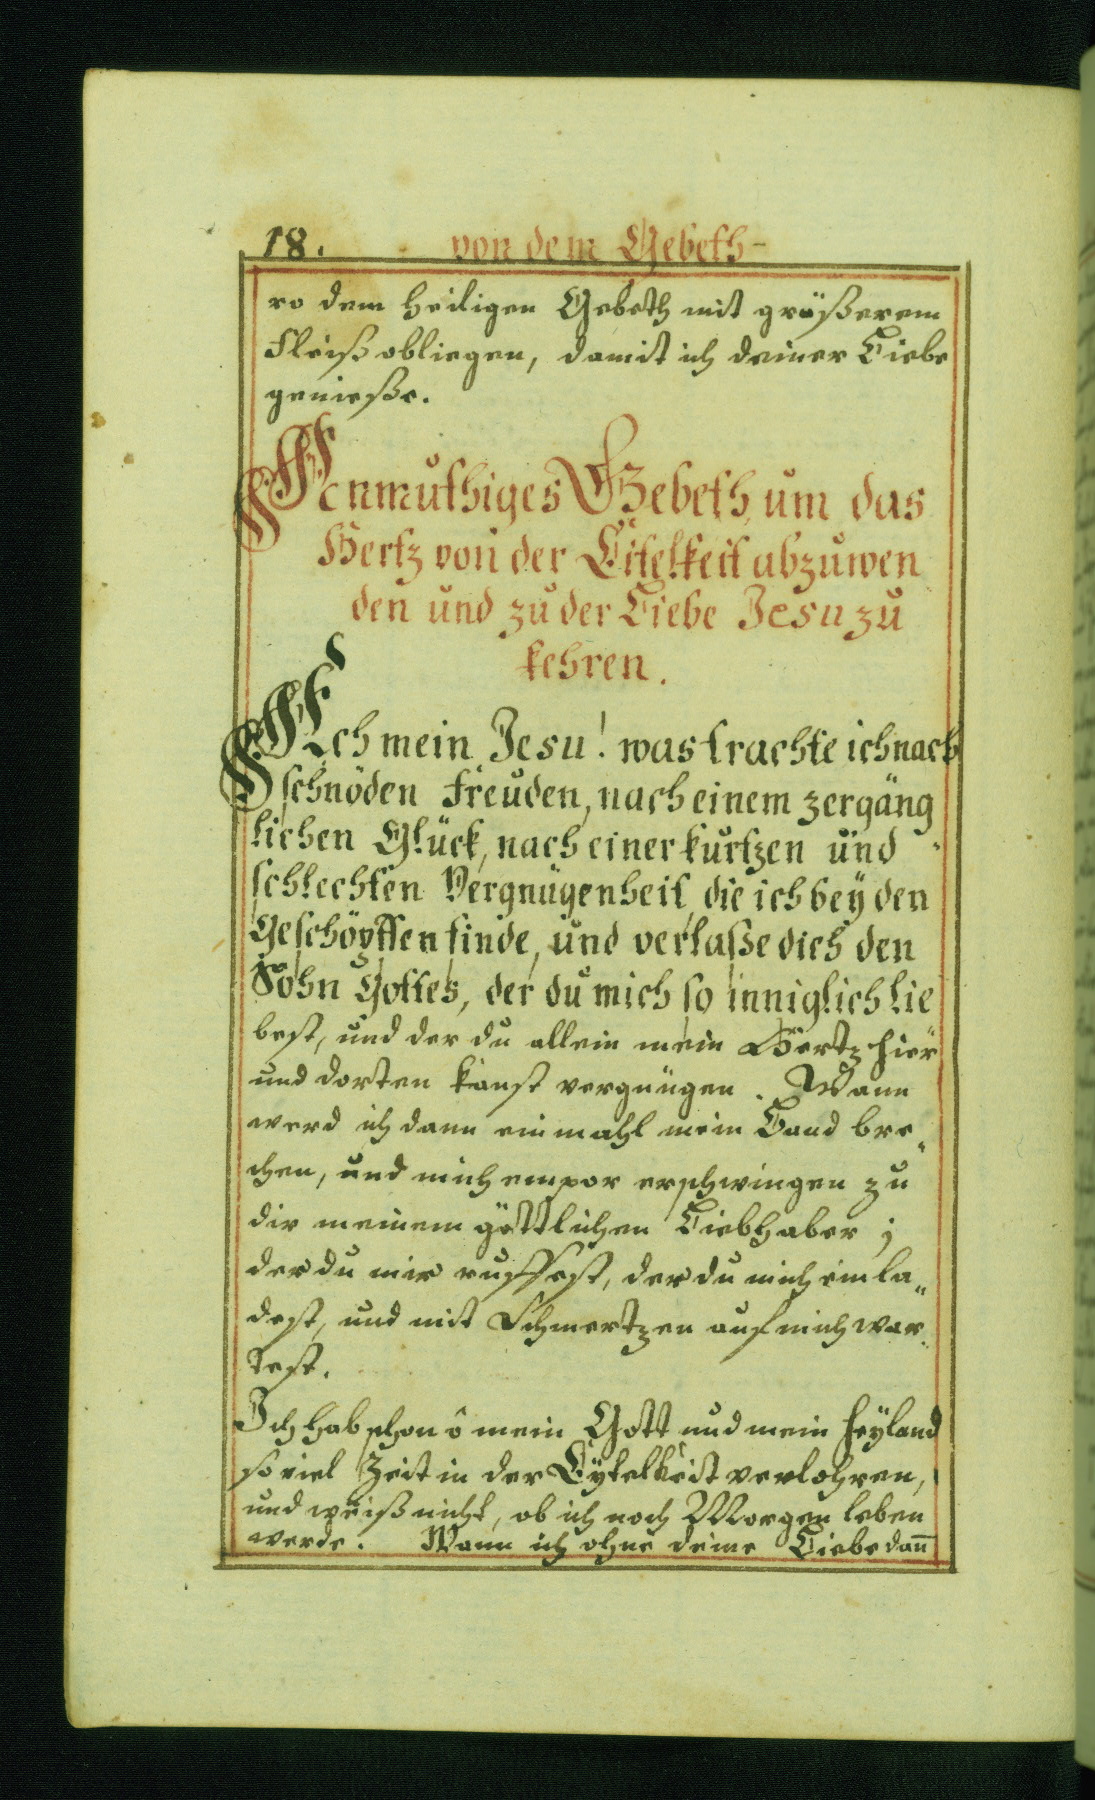 18. von dem Gebeth-
ro dem heiligen Gebeth mit größerem
Fleiß obliegen, damit ich deiner Liebe
genieße.
Anmuthiges Gebeth, um das
Hertz von der Eitelkeit abzuwen
den und zu der Liebe Jesu zu
kehren.
Ach mein Jesu! was trachte ich nach
schnöden Freuden, nach einem zergäng
lichen Glück, nach einer kurtzen und
schlechten Vergnügenheit die ich bey den
Geschöpffen finde, und verlaße dich den
Sohn Gottes, der du mich so inniglich lie
best, und der du allein mein Hertz hier
und dorten kanst vergnügen. Wann
werd ich dann einmahl mein Band bre„
chen, und mich empor erschwingen zu
dir meinem göttlichen Liebhaber;
der du mir ruffest, der du mich einla„
dest, und mit Schmertzen auf mich war„
test.
Ich hab schon ô mein Gott und mein Heyland
so viel Zeit in der Eytelkeit verlohren,
und weiß nicht, ob ich noch Morgen leben
werde. Wann ich ohne deine Liebe dan̄